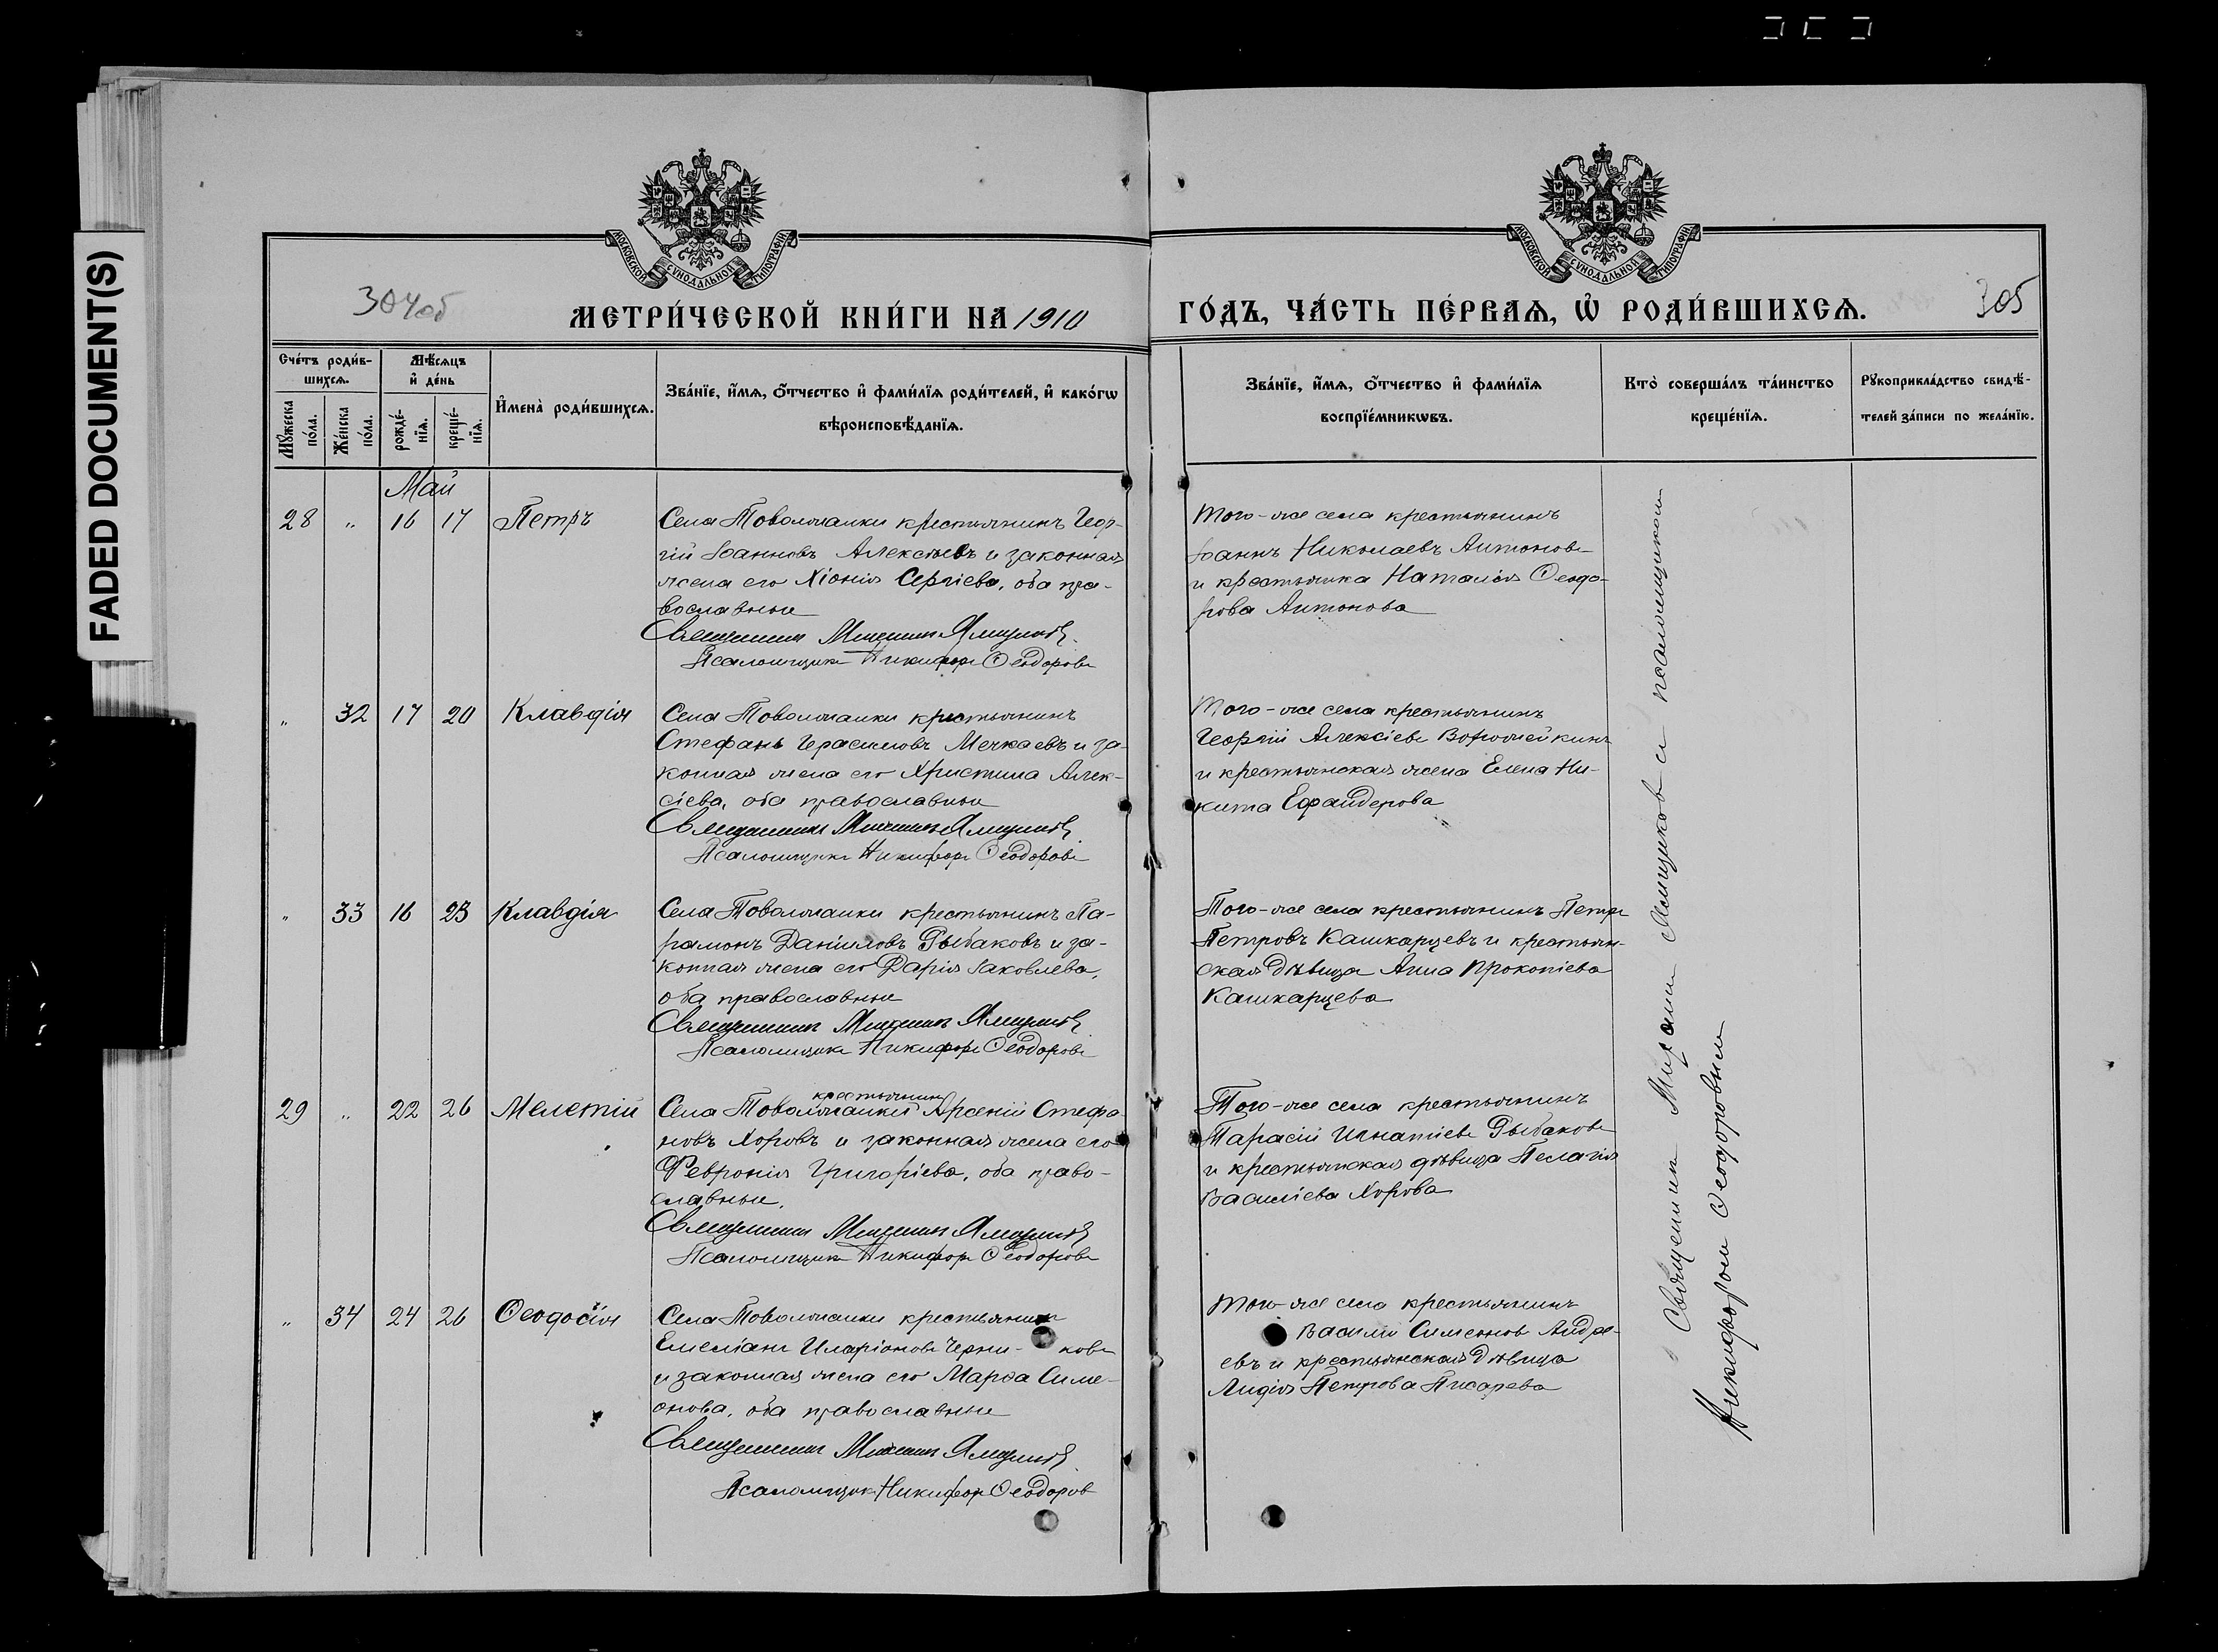 FADED DOCUMENT(S)
МОСКОВСКОЙ СУНОДАЛЬНОЙ ТИПОГРАФІИ
МОСКОВСКОЙ СУНОДАЛЬНОЙ ТИПОГРАФІИ
304об
МЕТРИ́ЧЕСКОЙ КНИ́ГИ НА 1910
ГО́ДЪ, ЧА́СТЬ ПЕ́РВАѦ, Ѡ҆ РОДИ́ВШИХСѦ.
305
Сче́тъ роди́в-
шихсѧ.
Мꙋ́жеска
по́ла.
Же́нска
по́ла.
Мѣ́сѧцъ
и҆ де́нь
рожде́-
нїѧ.
креще́-
нїѧ.
И҆мена̀ роди́вшихсѧ.
Зва́нїе, и҆́мѧ, ѻ҆́тчество и҆ фами́лїѧ роди́телей, и҆ како́гѡ
вѣроисповѣ́данїѧ.
Зва́нїе, и҆́мѧ, ѻ҆́тчество и҆ фами́лїѧ
воспрїе́мникѡвъ.
Кто̀ соверша́лъ та́инство
креще́нїѧ.
Рꙋкоприкла́дство свидѣ́-
телей за́писи по жела́нїю.
Май
28 „ 16 17 Петръ
Села Товолжанки крестьянинъ Геор-
гій Іоанновъ Алексѣевъ и законная
жена его Хіонія Сергіева, оба пра-
вославные
Священникъ Михаилъ Ямщиковъ
Псаломщикъ Никифоръ Ѳеодоровъ
Того-же села крестьянинъ
Іоаннъ Николаевъ Антоновъ
и крестьянка Наталія Ѳеодо-
рова Антонова
„ 32 17 20 Клавдія
Села Товолжанки крестьянинъ
Стефанъ Герасимовъ Мечкаевъ и за-
конная жена его Христина Алек-
сіева, оба православные
Священникъ Михаилъ Ямщиковъ
Псаломщикъ Никифоръ Ѳеодоровъ
Того-же села крестьянинъ
Георгій Алексіевъ Ворожейкинъ
и крестьянская жена Елена Ни-
кита Ефандерова
„ 33 16 23 Клавдія
Села Товолжанки крестьянинъ Па-
рамонъ Даниловъ Рыбаковъ и за-
конная жена его Дарія Іаковлева,
оба православные
Священникъ Михаилъ Ямщиковъ
Псаломщикъ Никифоръ Ѳеодоровъ
Того-же села крестьянинъ Петръ
Петровъ Кашкарцевъ и крестьян-
ская дѣвица Анна Прокопіева
Кашкарцева
29 „ 22 26 Мелетій
крестьянинъ
Села Товолжанки Арсеній Стефа
новъ Хоровъ и законная жена его
Февронія Григоріева, оба право-
славные.
Священникъ Михаилъ Ямщиковъ
Псаломщикъ Никифоръ Ѳеодоровъ
Того-же села крестьянинъ
Тарасій Игнатіевъ Рыбаковъ
и крестьянская дѣвица Пелагія
Василіева Хорова
„ 34 24 26 Ѳеодосія
Села Товолжанки крестьянинъ
Емеліанъ Иларіоновъ Черни- ковъ
и законная жена его Марѳа Симе-
онова, оба православные
Священникъ Михаилъ Ямщиковъ
Псаломщикъ Никифоръ Ѳеодоровъ
Того-же села крестьянинъ
Василій Симеоновъ Андре-
евъ и крестьянская дѣвица
Лидія Петрова Писарева
Священникъ Михаилъ Ямщиковъ и псаломщикомъ
Никифоромъ Ѳеодоровымъ